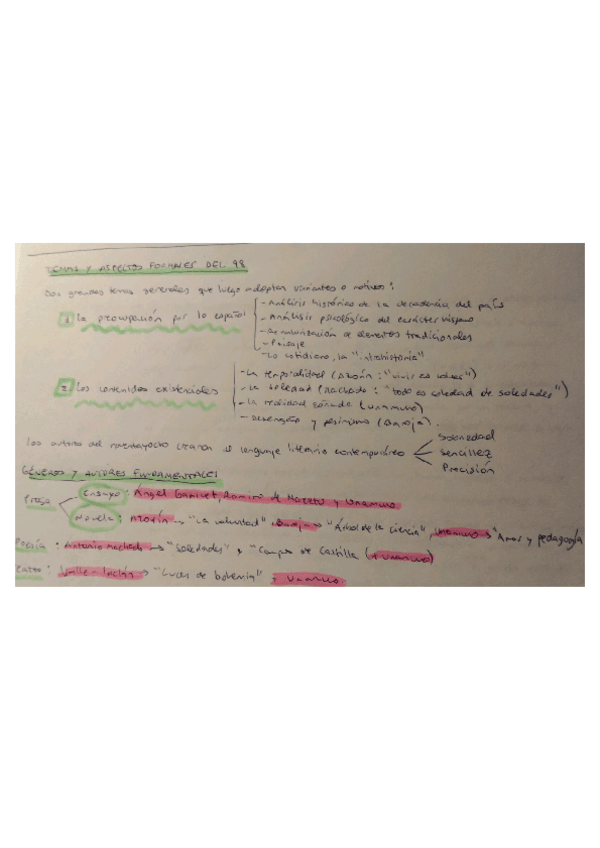 TEMAS Y ASPECTOS FORMALES DEL 98
Dos grandes temas generales que luego adoptan variantes o motivos:
1. La preocupación por lo español
- Análisis histórico de la decadencia del país
- Análisis psicológico del carácter hispano
- de elementos tradicionales
- Paisaje
- Lo cotidiano, la "intrahistoria"
2. Los contenidos existenciales
- La temporalidad (Azorín: "vivir es volver")
- La soledad (Machado: "todo es soledad de soledades")
- La realidad soñada (Unamuno).
- Desengaño y pesimismo (Baroja).
Los autores del noventayocho crearon el lenguaje literario contemporáneo
Sobriedad
Sencillez
Precisión
GÉNEROS Y AUTORES FUNDAMENTALES
Prosa
Ensayo: Ángel Ganivet, Ramiro de Maeztu y Unamuno
Novela: Azorín → "La voluntad" Baroja → "Árbol de la ciencia", Unamuno → "Amor y pedagogía
Poesía: Antonio Machado → "Soledades" y "Campos de Castilla (+ Unamuno)
eatro: Valle-Inclán → "Luces de bohemia" y Unamuno